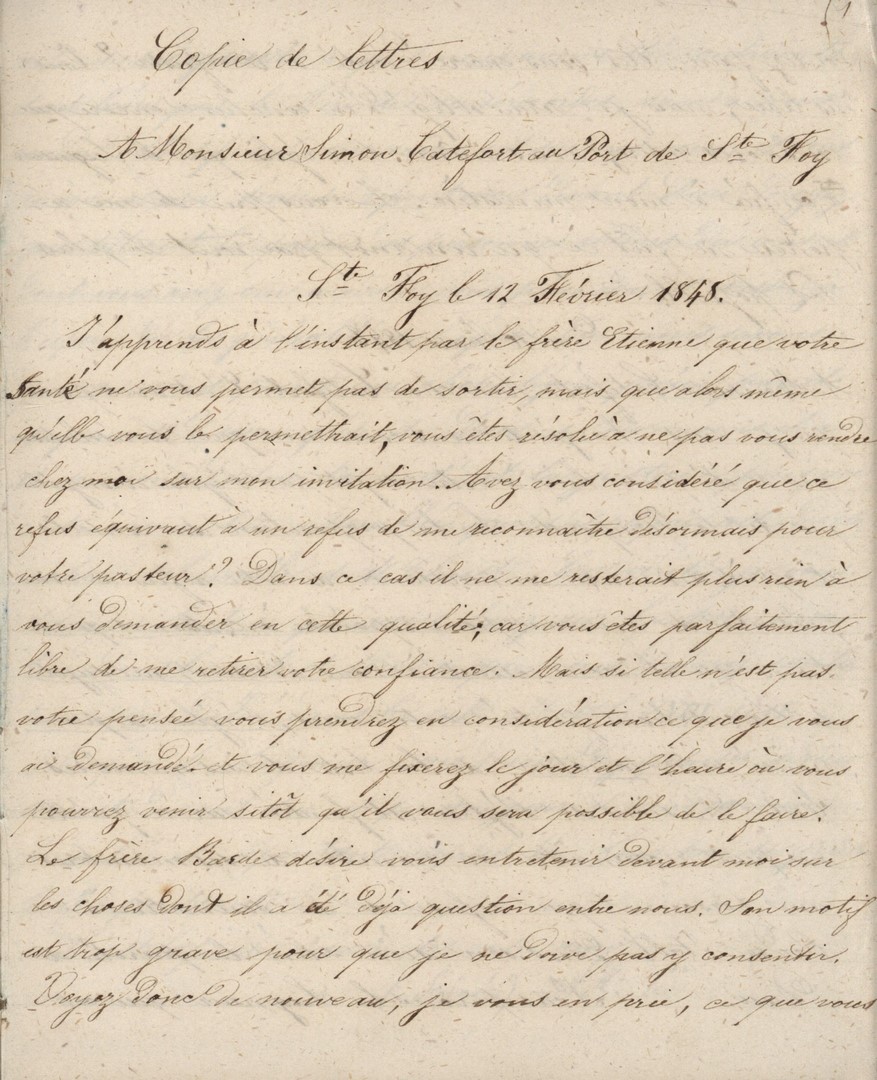 (1
Copie de lettres
A Monsieur Simon Catefort au Port de Ste Foy
Ste Foy le 12 Février 1848.
J'apprends à l'instant par le frère Etienne que votre
santé ne vous permet pas de sortir, mais que alors même
qu'elle vous le permettrait, vous êtes résolu à ne pas vous rendre
chez moi sur mon invitation. Avez vous considéré que ce
refus équivaut à un refus de me reconnaître désormais pour
votre pasteur? Dans ce cas il ne me resterait plus rien à
vous demander en cette qualité; car vous êtes parfaitement
libre de me retirer votre confiance. Mais si telle n'est pas
votre pensée vous prendrez en considération ce que je vous
ai demandé et vous me fixerez le jour et l'heure où vous
pourrez venir sitôt qu'il vous sera possible de le faire.
Le frère Barde désire vous entretenir devant moi sur
les choses dont il a été déjà question entre nous. Son motif
est trop grave pour que je ne doive pas y consentir.
Voyez donc de nouveau, je vous en prie, ce que vous